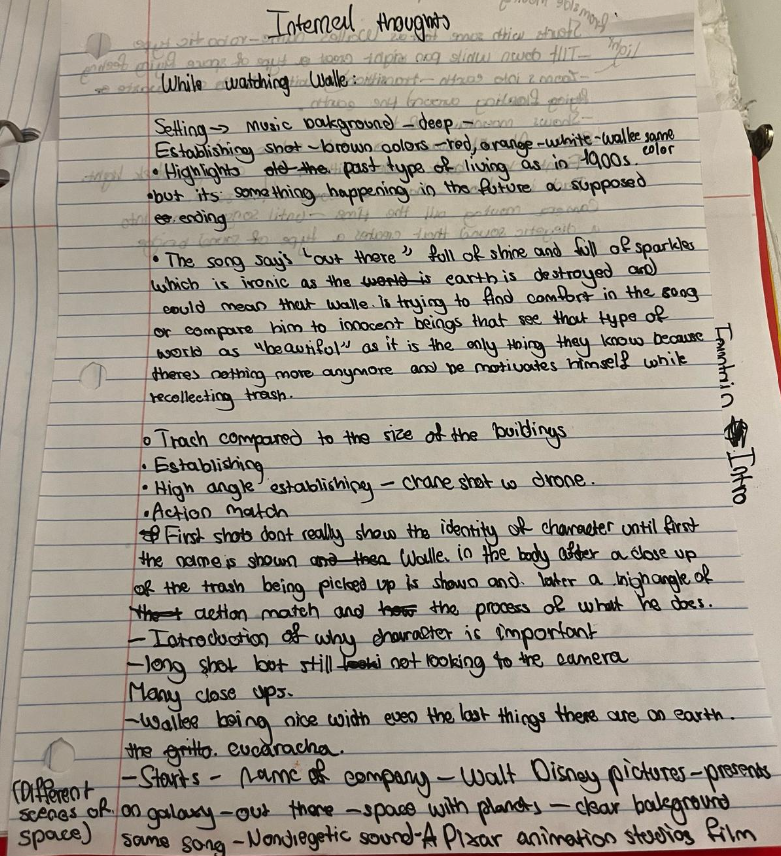 Internal thoughts
While watching Walle:
Setting → Music bakground - deep -
Establishing shot - brown colors - red, orange - white - wallee same color
• Highlights old the past type of living as in 1900s.
• but its something happening in the future a supposed
ending
• The song say's "out there" full of shine and full of sparkles
which is ironic as the world is earth is destroyed and
could mean that walle is trying to find comfort in the song
or compare him to innocent beings that see that type of
world as "beautiful" as it is the only thing they know because
theres nothing more anymore and he motivates himself while
recollecting trash.
Intro
o Trach compared to the size of the buildings
• Establishing
• High angle establishing - crane shot w drone.
• Action match
First shots dont really show the identity of character until first
the name is shown and then Walle. in the body after a close up
of the trash being picked up is shown and later a high angle of
action match and how the process of what he does.
- Introduction of why character is important
- long shot but still not looking to the camera
Many close ups.
- Wallee being nice with even the last things there are on earth.
the grillo. cucaracha.
- Starts - name of company - Walt Disney pictures - presents
(Different scenes of space)
on galaxy - out there - space with planets - clear bakground
same song - Nondiegetic sound - A Pixar animation studios film